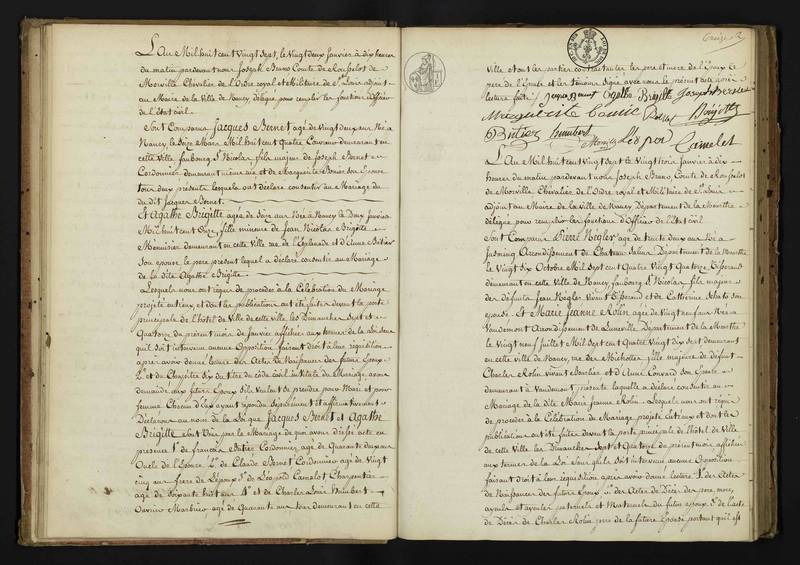 L'An Mil huit cent Vingt Sept, le Vingt deux Janvier à dix heures
du matin pardevant nous Joseph Bruno Comte de Rousselot de
Morville Chevalier de l'Ordre royal et Militaire de St Louis adjoint
au Maire de la Ville de Nancy délégué pour remplir les fonctions d'officier
de l'état civil
Sont Comparus Jacques Bernet agé de Vingt deux ans Né à
Nancy le Seize Mars Mil huit cent Quatre Couvreur demeurant en
cette Ville faubourg St Nicolas fils majeur de Joseph Bernet
Cordonnier demeurant même rue et de Marguerite son Epouse
tous deux présents lesquels ont déclaré consentir au Mariage du
du dit Jacques Bernet.
Et Agathe Brigitte agée de Seize ans Née à Nancy le Deux Janvier
Mil huit cent Onze, fille mineure de Jean Nicolas Brigitte
Menuisier demeurant en cette Ville rue de l'Esplanade et d'Anne
Son épouse le père présent lequel a déclaré consentir au Mariage
de la dite Agathe Brigitte.
Lesquels nous ont requis de procéder à la Célébration du Mariage
projetté entr'eux et dont les publications ont été faites devant la porte
principale de l'hôtel de Ville de cette Ville, les Dimanches Sept et
Quatorze du présent mois de Janvier affichées aux termes de la loi sans
qu'il soit intervenu aucune Opposition faisant droit à leur réquisition
après avoir donné lecture des Actes de Naissances des futurs Epoux
et du Chapitre Six du titre du code civil intitulé du Mariage, avons
demandé aux futurs Epoux s'ils veulent se prendre pour Mari et pour
femme Chacun d'eux ayant répondu séparément et affirmativement
Déclarons au nom de la Loi que Jacques Bernet et Agathe
Brigitte sont Unis par le Mariage de quoi avons dressé acte en
présence de françois Cordonnier agé de Quarante deux ans
Oncle de l'Epouse 2° de Claude Bernet Cordonnier agé de Vingt
cinq ans frère de l'époux 3° de Léopold Camelot Charpentier
agé de Soixante huit ans 4° et de Charles Louis Humbert
Ouvrier Marbrier agé de Quarante un ans demeurant en cette
Ville et ont les parties contractantes les père et mère de l'époux le
père de l'épouse et les témoins signé avec nous le présent acte après
lecture faite
Agathe Brigitte Joseph Bernet
Marguerite
Brigitte
humbert
Léopold Camelot
L'An Mil huit cent Vingt Sept le Vingt trois Janvier à dix
heures du matin pardevant nous Joseph Bruno, Comte de Rousselot
de Morville, Chevalier de l'Ordre royal et Militaire de St Louis
adjoint au Maire de la Ville de Nancy Département de la Meurthe
délégué pour remplir les fonctions d'Officier de l'état civil
Sont Comparus Pierre Negler agé de trente deux ans Né à
Arrondissement de Chateau Salins Département de la Meurthe
le Vingt Six Octobre Mil Sept cent Quatre Vingt Quatorze
demeurant en cette Ville de Nancy, faubourg St Nicolas fils majeur
de défunts Jean Negler vivant et de Catherine son
épouse. Et Marie Jeanne Rolin agée de Vingt neuf ans Née à
Vaudemont Arrondissement de Luneville Département de la Meurthe
le Vingt neuf Juillet Mil Sept cent Quatre Vingt dix sept demeurant
en cette Ville de Nancy, rue des Michottes fille majeure de défunt
Charles Rolin vivant et d'Anne son Epouse
demeurant à Vaudemont présente laquelle a déclaré consentir au
Mariage de la dite Marie Jeanne Rolin. Lesquels nous ont requis
de procéder à la Célébration du Mariage projetté entr'eux et dont les
publications ont été faites devant la porte principale de l'hôtel de Ville
de cette Ville les Dimanches Sept et Quatorze du présent mois affichées
aux termes de la Loi Sans qu'il soit intervenu aucune Opposition
faisant droit à leur réquisition après avoir donné lecture 1° des Actes
de Naissances des futurs Epoux 2° des Actes de Décès des père, mère,
ayeuls et ayeules paternels et Maternels du futur époux 3° de l'acte
de Décès de Charles Rolin père de la future Epouse portant qu'il est